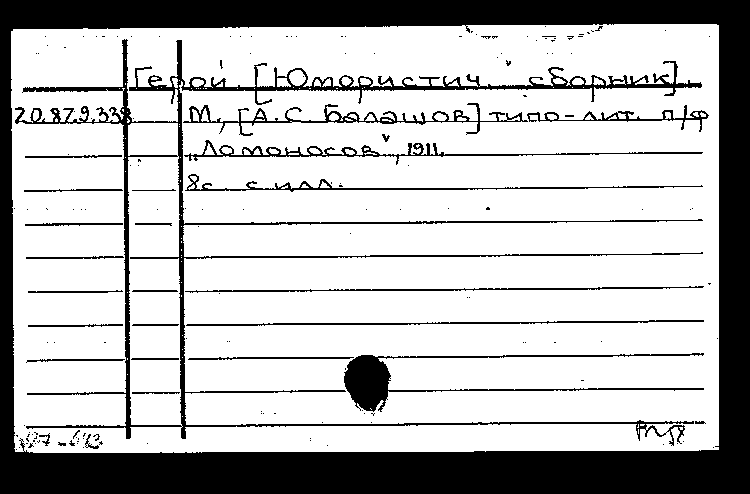 Герой. [Юмористич. сборник].
20.87.9.338 М., [А.С. Балашов] типо-лит. п/ф
„Ломоносов", 1911.
8с. с илл.